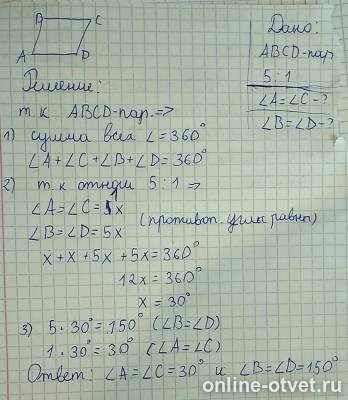 B C
A D
Дано:
ABCD-пар.
5:1
∠A=∠C-?
∠B=∠D-?
Решение:
т.к ABCD-пар.=>
1) сумма всех ∠=360°
∠A+∠C+∠B+∠D=360°
2) т.к отнош 5:1 =>
∠A=∠C=1x
∠B=∠D=5x
(противоп. углы равны)
x+x+5x+5x=360°
12x=360°
x=30°
3) 5·30°=150° (∠B=∠D)
1·30°=30° (∠A=∠C)
Ответ: ∠A=∠C=30° и ∠B=∠D=150°
online-otvet.ru